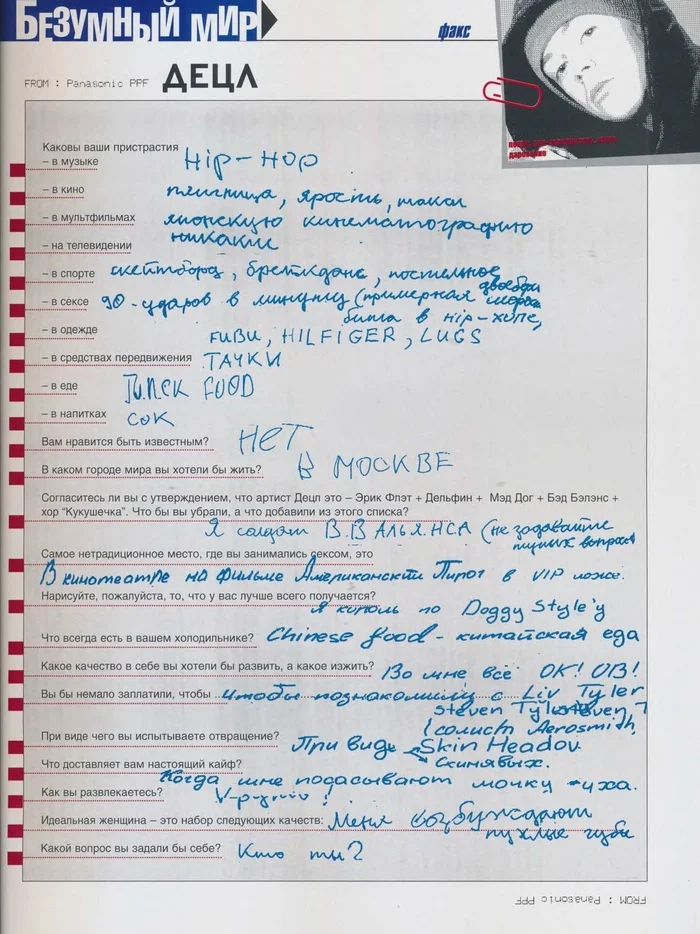 БЕЗУМНЫЙ МИР
факс
FROM : Panasonic PPF ДЕЦЛ
Каковы ваши пристрастия
– в музыке Hip-Hop
– в кино пятница, ярость, такси
– в мультфильмах японскую кинематографию
– на телевидении никакие
– в спорте скейтборд, брейкданс, постельное двоеборье
– в сексе 90-ударов в минуту (примерная
бита в hip-хопе,
– в одежде FUBU, HILFIGER, LUGS
– в средствах передвижения ТАЧКИ
– в еде FOOD
– в напитках СОК
Вам нравится быть известным? НЕТ
В каком городе мира вы хотели бы жить? В МОСКВЕ
Согласитесь ли вы с утверждением, что артист Децл это – Эрик Флэт + Дельфин + Мэд Дог + Бэд Бэлэнс +
хор “Кукушечка”. Что бы вы убрали, а что добавили из этого списка?
Я солдат В.В АЛЬЯНСА (не задавайте
вопросы
Самое нетрадиционное место, где вы занимались сексом, это
В кинотеатре на фильме Американский Пирог в VIP ложе.
Нарисуйте, пожалуйста, то, что у вас лучше всего получается?
Я король по Doggy Style'у
Что всегда есть в вашем холодильнике? Chinese food - китайская еда
Какое качество в себе вы хотели бы развить, а какое изжить? Во мне всё ОК!
Вы бы немало заплатили, чтобы чтобы познакомили с Liv Tyler
Steven
(солист Aerosmith,
При виде чего вы испытываете отвращение? При виде Skin Headov.
Скинявых.
Что доставляет вам настоящий кайф?
Когда мне посасывают мочку уха.
Как вы развлекаетесь?
Идеальная женщина – это набор следующих качеств: Меня возбуждают
пухлые губы
Какой вопрос вы задали бы себе? Кто ты?
FROM : Panasonic PPF